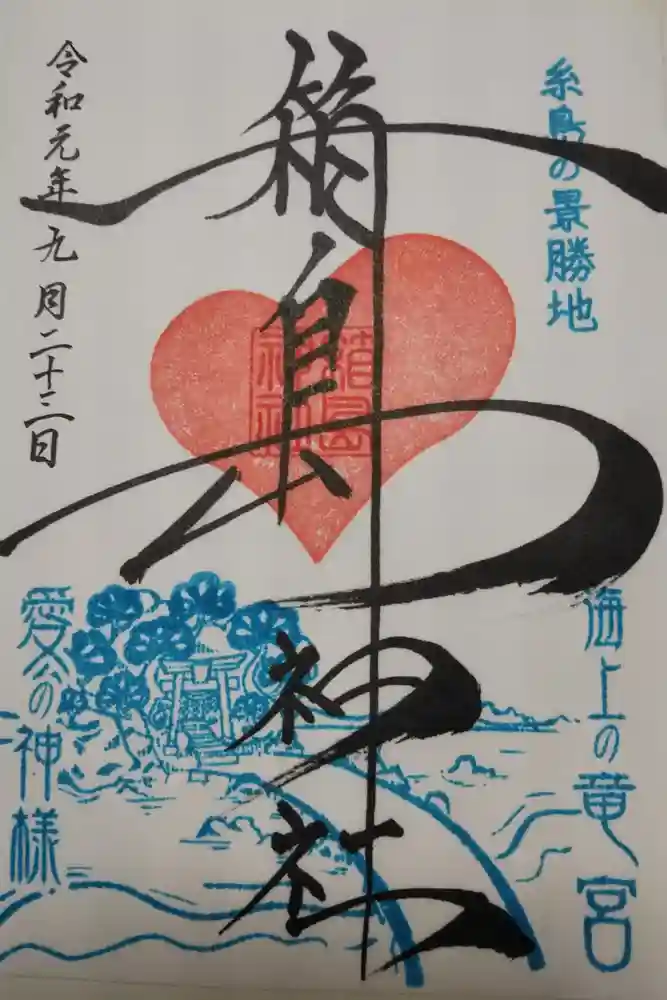 糸島の景勝地
海上の竜宮
箱島神社
箱島
神社
令和元年九月二十三日
愛の神様